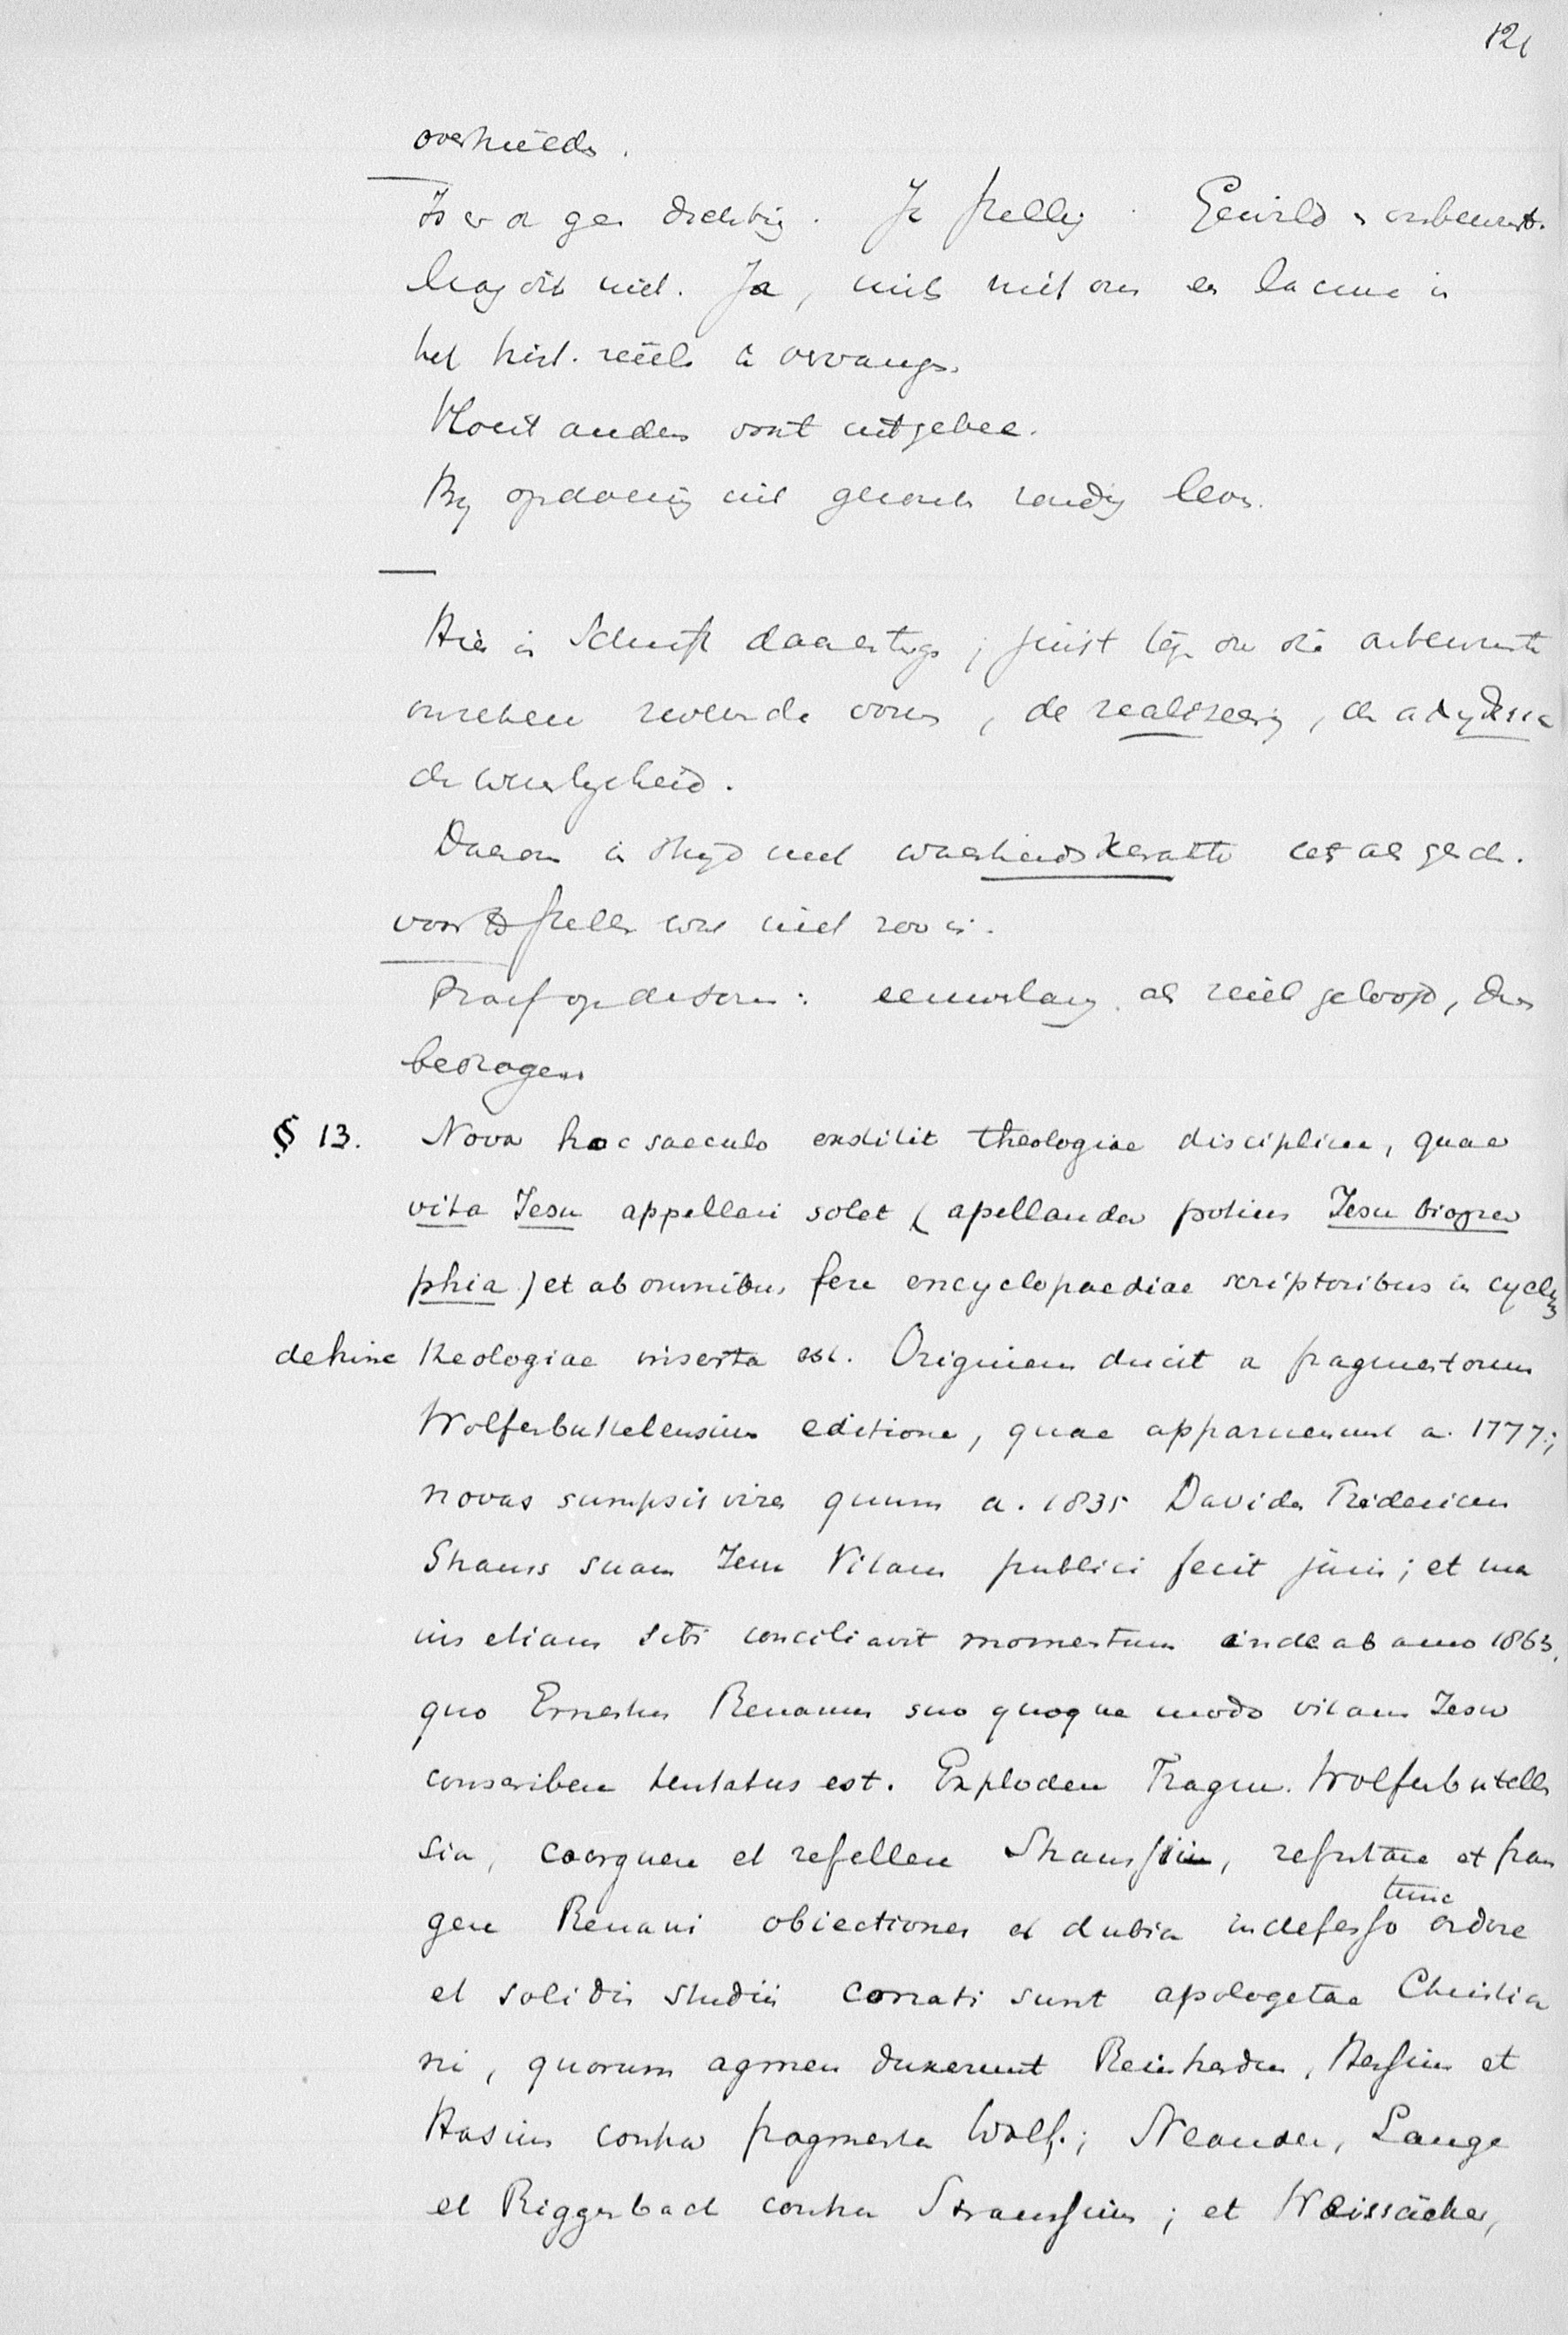 121
overheids.
Is er dan geen dichting. Ja stellig. Gewild onbewust.
Mag dit niet. Ja, mits niet om
het hist. reëele te vervangen.
Nooit anders ooit uitgeven.
Hier is Schrift daarentegen; juist die onbewuste
zwevende vorm, de realiseering, de
de werkelijkheid.
Daarom is altijd met waarheidskarakter
voor te stellen wat niet zoo is.
Proef op de som: eeuwenlang als reëel geloofd, dus
bedrogen
§ 13. Nova hoc saeculo exstitit theologiae disciplina, quae
vita Iesu appellari solet (apellanda potius Iesu biogra
phia) et ab omnibus fere encyclopaediae scriptoribus in cyclum
dehinc theologiae inserta est. Originem ducit a fragmentorum
Wolferbuttelensium editione, quae apparuerunt a. 1777;
novas sumpsit vires quum a. 1835 Davides Fridericus
Strauss suam Iesu Vitam publici fecit juris; et ma
ius etiam sibi conciliavit momentum inde ab anno 1863,
quo Ernestus Renanus suo quoque modo vitam Iesu
conscribere tentatus est. Explodere Fragm. Wolferbutelle
sia, coarguere et refellere Straussium, refutare et fran
gere Renani obiectiones et dubia indefesso tunc ardore
et solidis studiis conati sunt apologetae Christia
ni, quorum agmen duxerunt Reinhardus, Hessius et
Hasius contra fragmenta Wolf.; Neander, Lange
et Riggenbach contra Straussium; et Weissäcker,